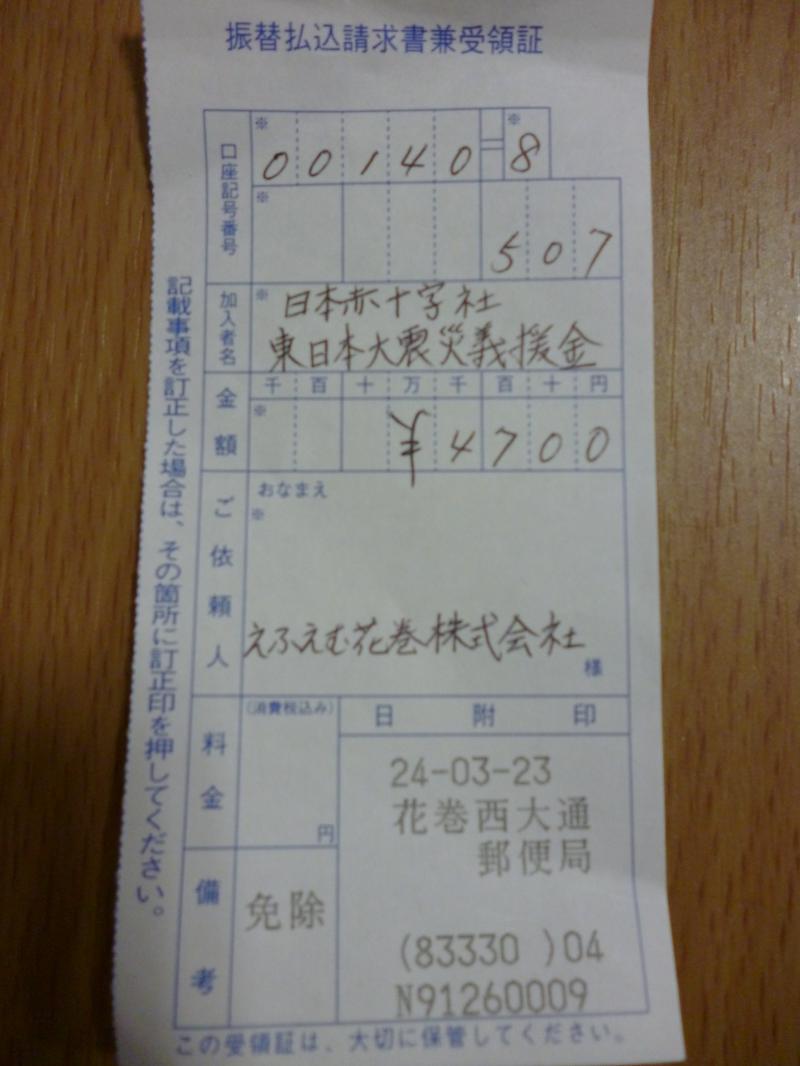 振替払込請求書兼受領証
口座記号番号
※ ※
00140=8
※
507
加入者名
※
日本赤十字社
東日本大震災義援金
金額
千百十万千百十円
※
¥4700
ご依頼人
おなまえ
※
えふえむ花巻株式会社
様
料金
(消費税込み)
円
日附印
24-03-23
花巻西大通
郵便局
(83330 )04
N91260009
備考
免除
記載事項を訂正した場合は、その箇所に訂正印を押してください。
この受領証は、大切に保管してください。